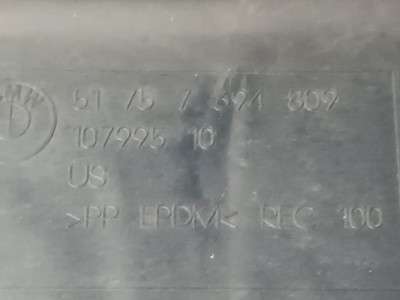 BMW
51 75 7 394 809
107995 10
US
>PP EPDM< REC 100